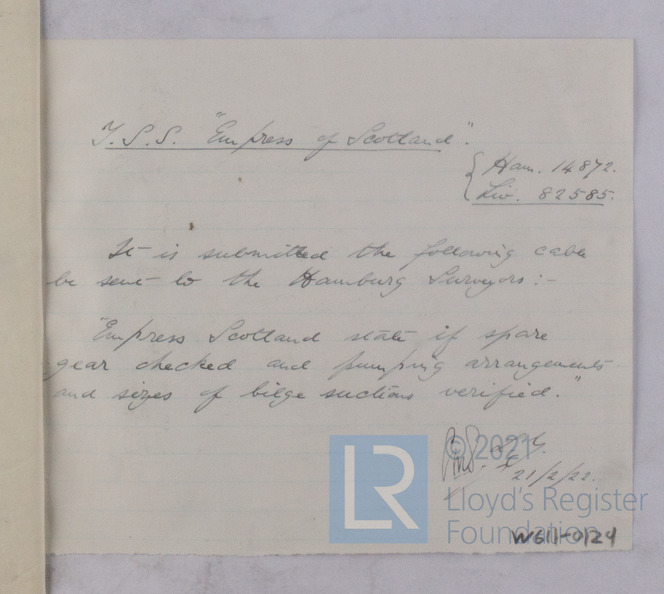 T.S.S. "Empress of Scotland".
{ Ham. 14872.
Liv. 82585.
It is submitted the following cable
be sent to the Hamburg Surveyors:-
"Empress Scotland state if spare
gear checked and pumping arrangements
and sizes of bilge suctions verified."
21/2/22.
© 2021
LR
Lloyd's Register
Foundation
W611-0124